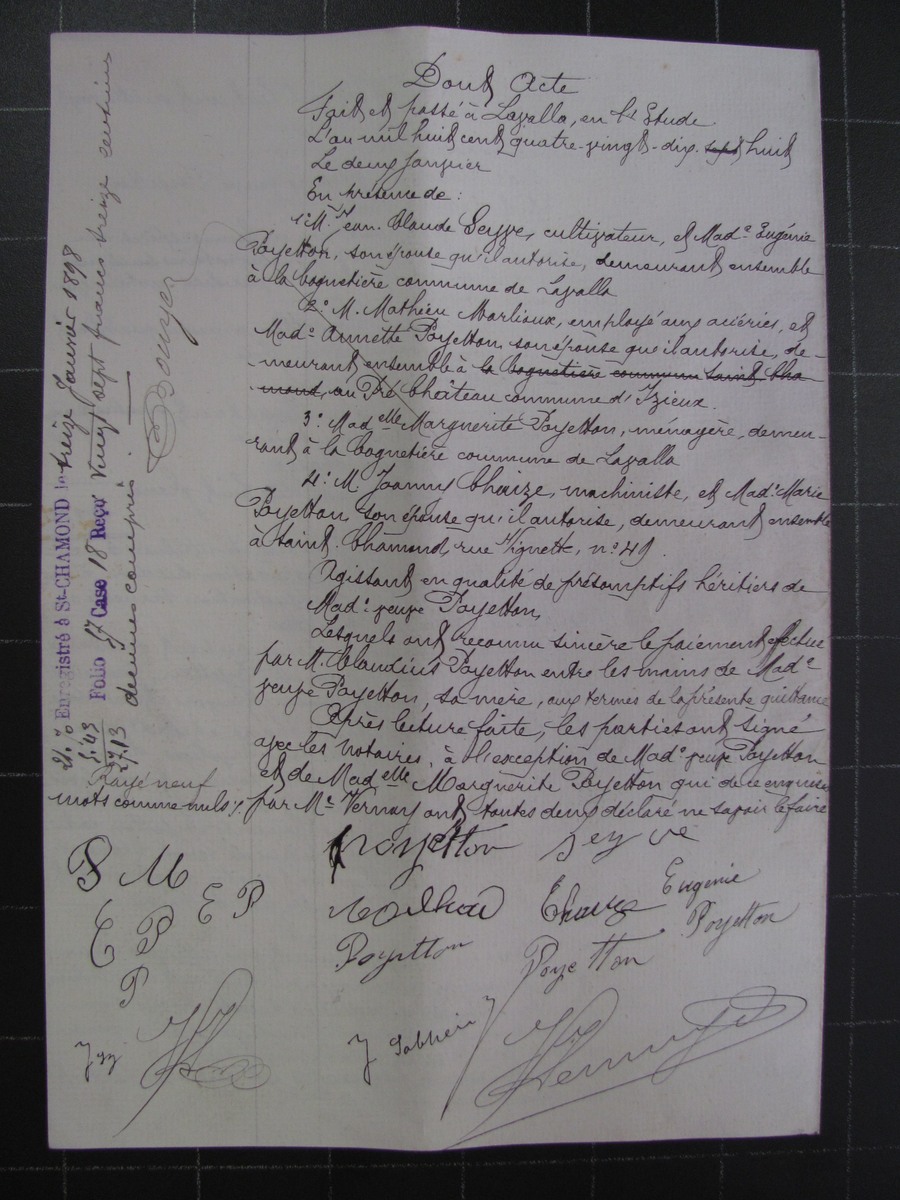 Dont Acte
Fait et passé à Lavalla, en l'Etude
L'an mil huit cent quatre-vingt-dix-sept huit
Le deux Janvier
En présence de :
1° M. Jean Claude Seyve, cultivateur, et Mad.e Eugénie
Poyetton, son épouse qu'il autorise, demeurant ensemble
à la Cognetière commune de Lavalla
2° M. Mathieu Marlioux, employé aux aciéries, et
Mad.e Annette Poyetton son épouse qu'il autorise, de-
-meurant ensemble à la Cognetière commune Saint Cha
mond, au Pré Château commune d'Izieux.
3° Mad.elle Marguerite Poyetton, ménagère, demeu-
rant à la Cognetière commune de Lavalla
4° M. Joanny Chaize, machiniste, et Mad.e Marie
Poyetton son épouse qu'il autorise, demeurant ensemble
à Saint-Chamond, rue Vignette, n° 49.
Agissant en qualité de présomptifs héritiers de
Mad.e veuve Poyetton,
Lesquels ont reconnu sincère le paiement effectué
par M. Claudius Poyetton entre les mains de Mad.e
veuve Poyetton, sa mère, aux termes de la présente quittance
Après lecture faite, les parties ont signé
avec les notaires, à l'exception de Mad.e veuve Poyetton
et de Mad.elle Marguerite Poyetton qui de ce enquises
par M.e Vernay ont toutes deux déclaré ne savoir le faire
Rayé neuf
mots comme nuls
Enregistré à St-CHAMOND le treize Janvier 1898
Folio 57 Case 18 Reçu Vingt sept francs treize centimes
décimes compris
21.70
5.43
27.13
Poyetton Seyve
Chaize Eugénie
Poyetton Poyetton Poyetton
P M
C P E P
P